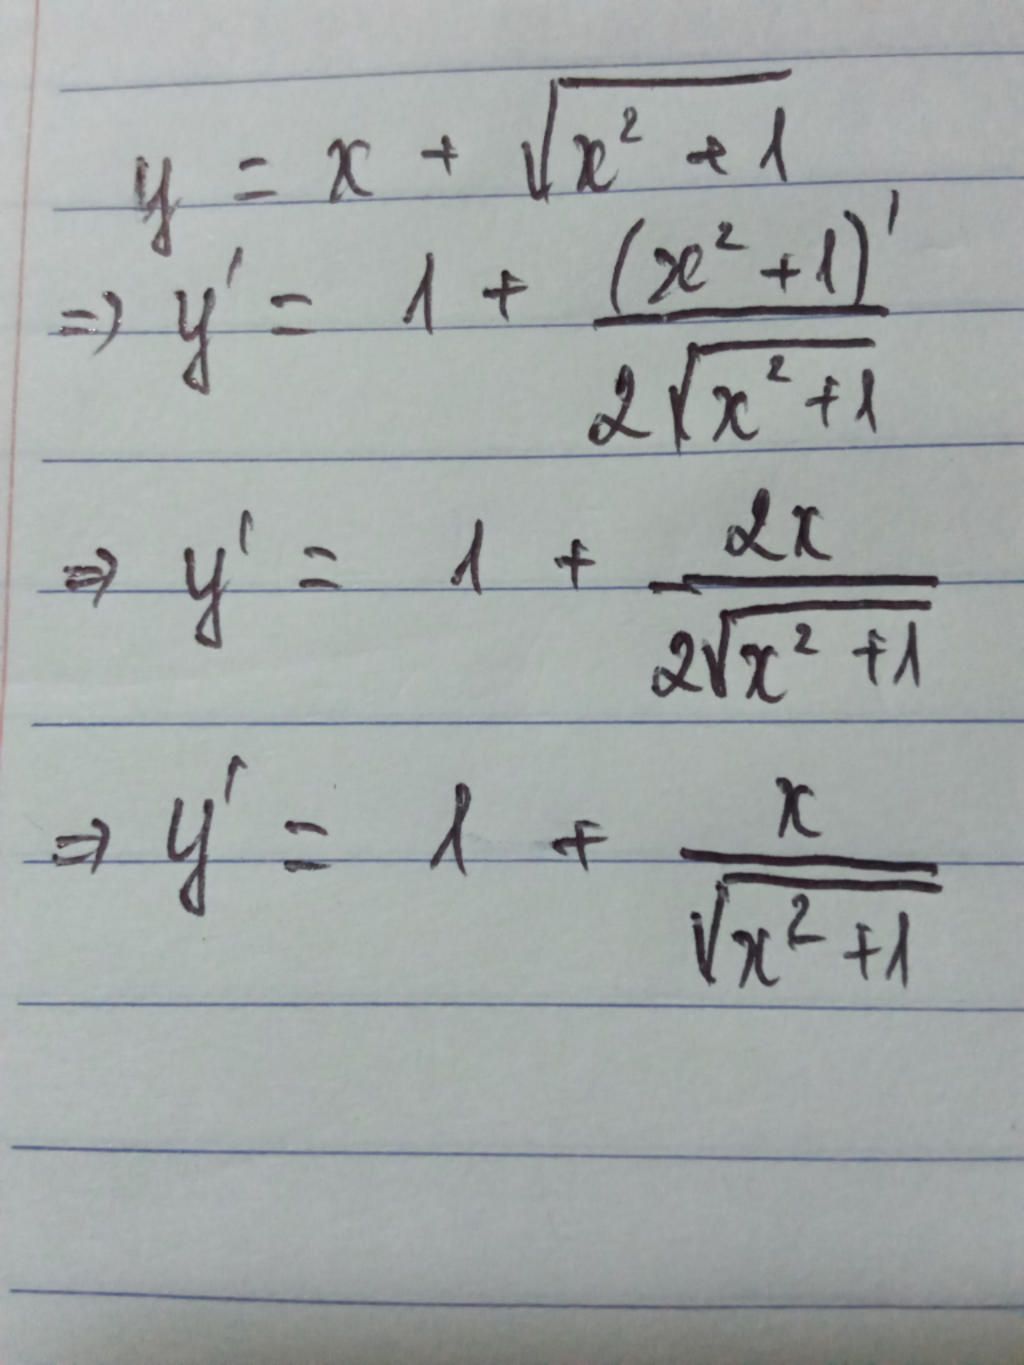 y = x + √(x² + 1)
⇒ y' = 1 + (x² + 1)' / 2√(x² + 1)
⇒ y' = 1 + 2x / 2√(x² + 1)
⇒ y' = 1 + x / √(x² + 1)